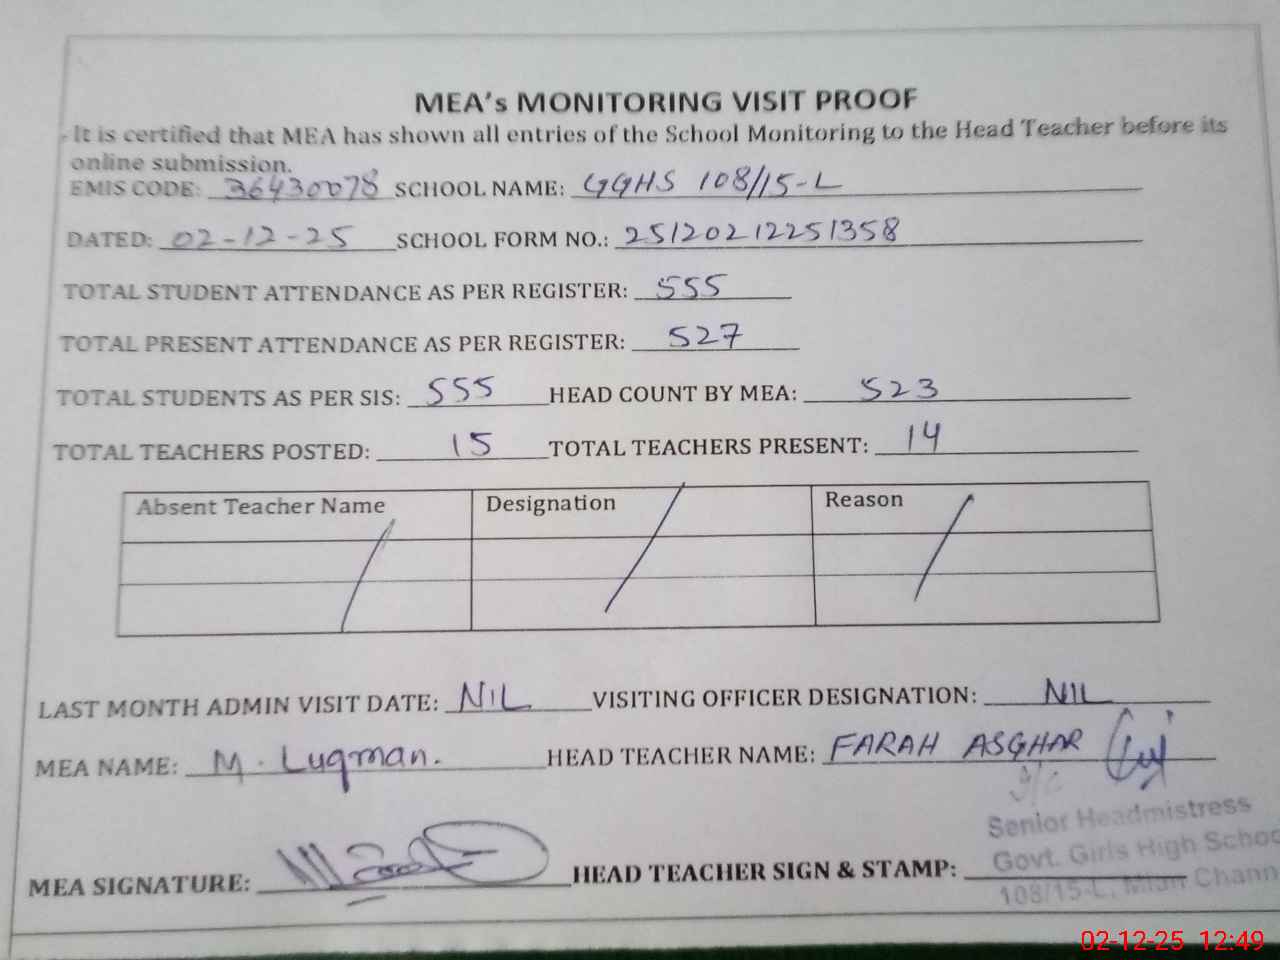 MEA's MONITORING VISIT PROOF
It is certified that MEA has shown all entries of the School Monitoring to the Head Teacher before its
online submission.
EMIS CODE: 36430078 SCHOOL NAME: GGHS 108/15-L
DATED: 02-12-25 SCHOOL FORM NO.: 25120212251358
TOTAL STUDENT ATTENDANCE AS PER REGISTER: 555
TOTAL PRESENT ATTENDANCE AS PER REGISTER: 527
TOTAL STUDENTS AS PER SIS: 555 HEAD COUNT BY MEA: 523
TOTAL TEACHERS POSTED: 15 TOTAL TEACHERS PRESENT: 14
Absent Teacher Name Designation Reason
LAST MONTH ADMIN VISIT DATE: NIL VISITING OFFICER DESIGNATION: NIL
MEA NAME: M. Luqman. HEAD TEACHER NAME: FARAH ASGHAR
MEA SIGNATURE: HEAD TEACHER SIGN & STAMP:
Senior Headmistress
Govt. Girls High Schoo
108/15-L, Mian Chann
02-12-25 12:49